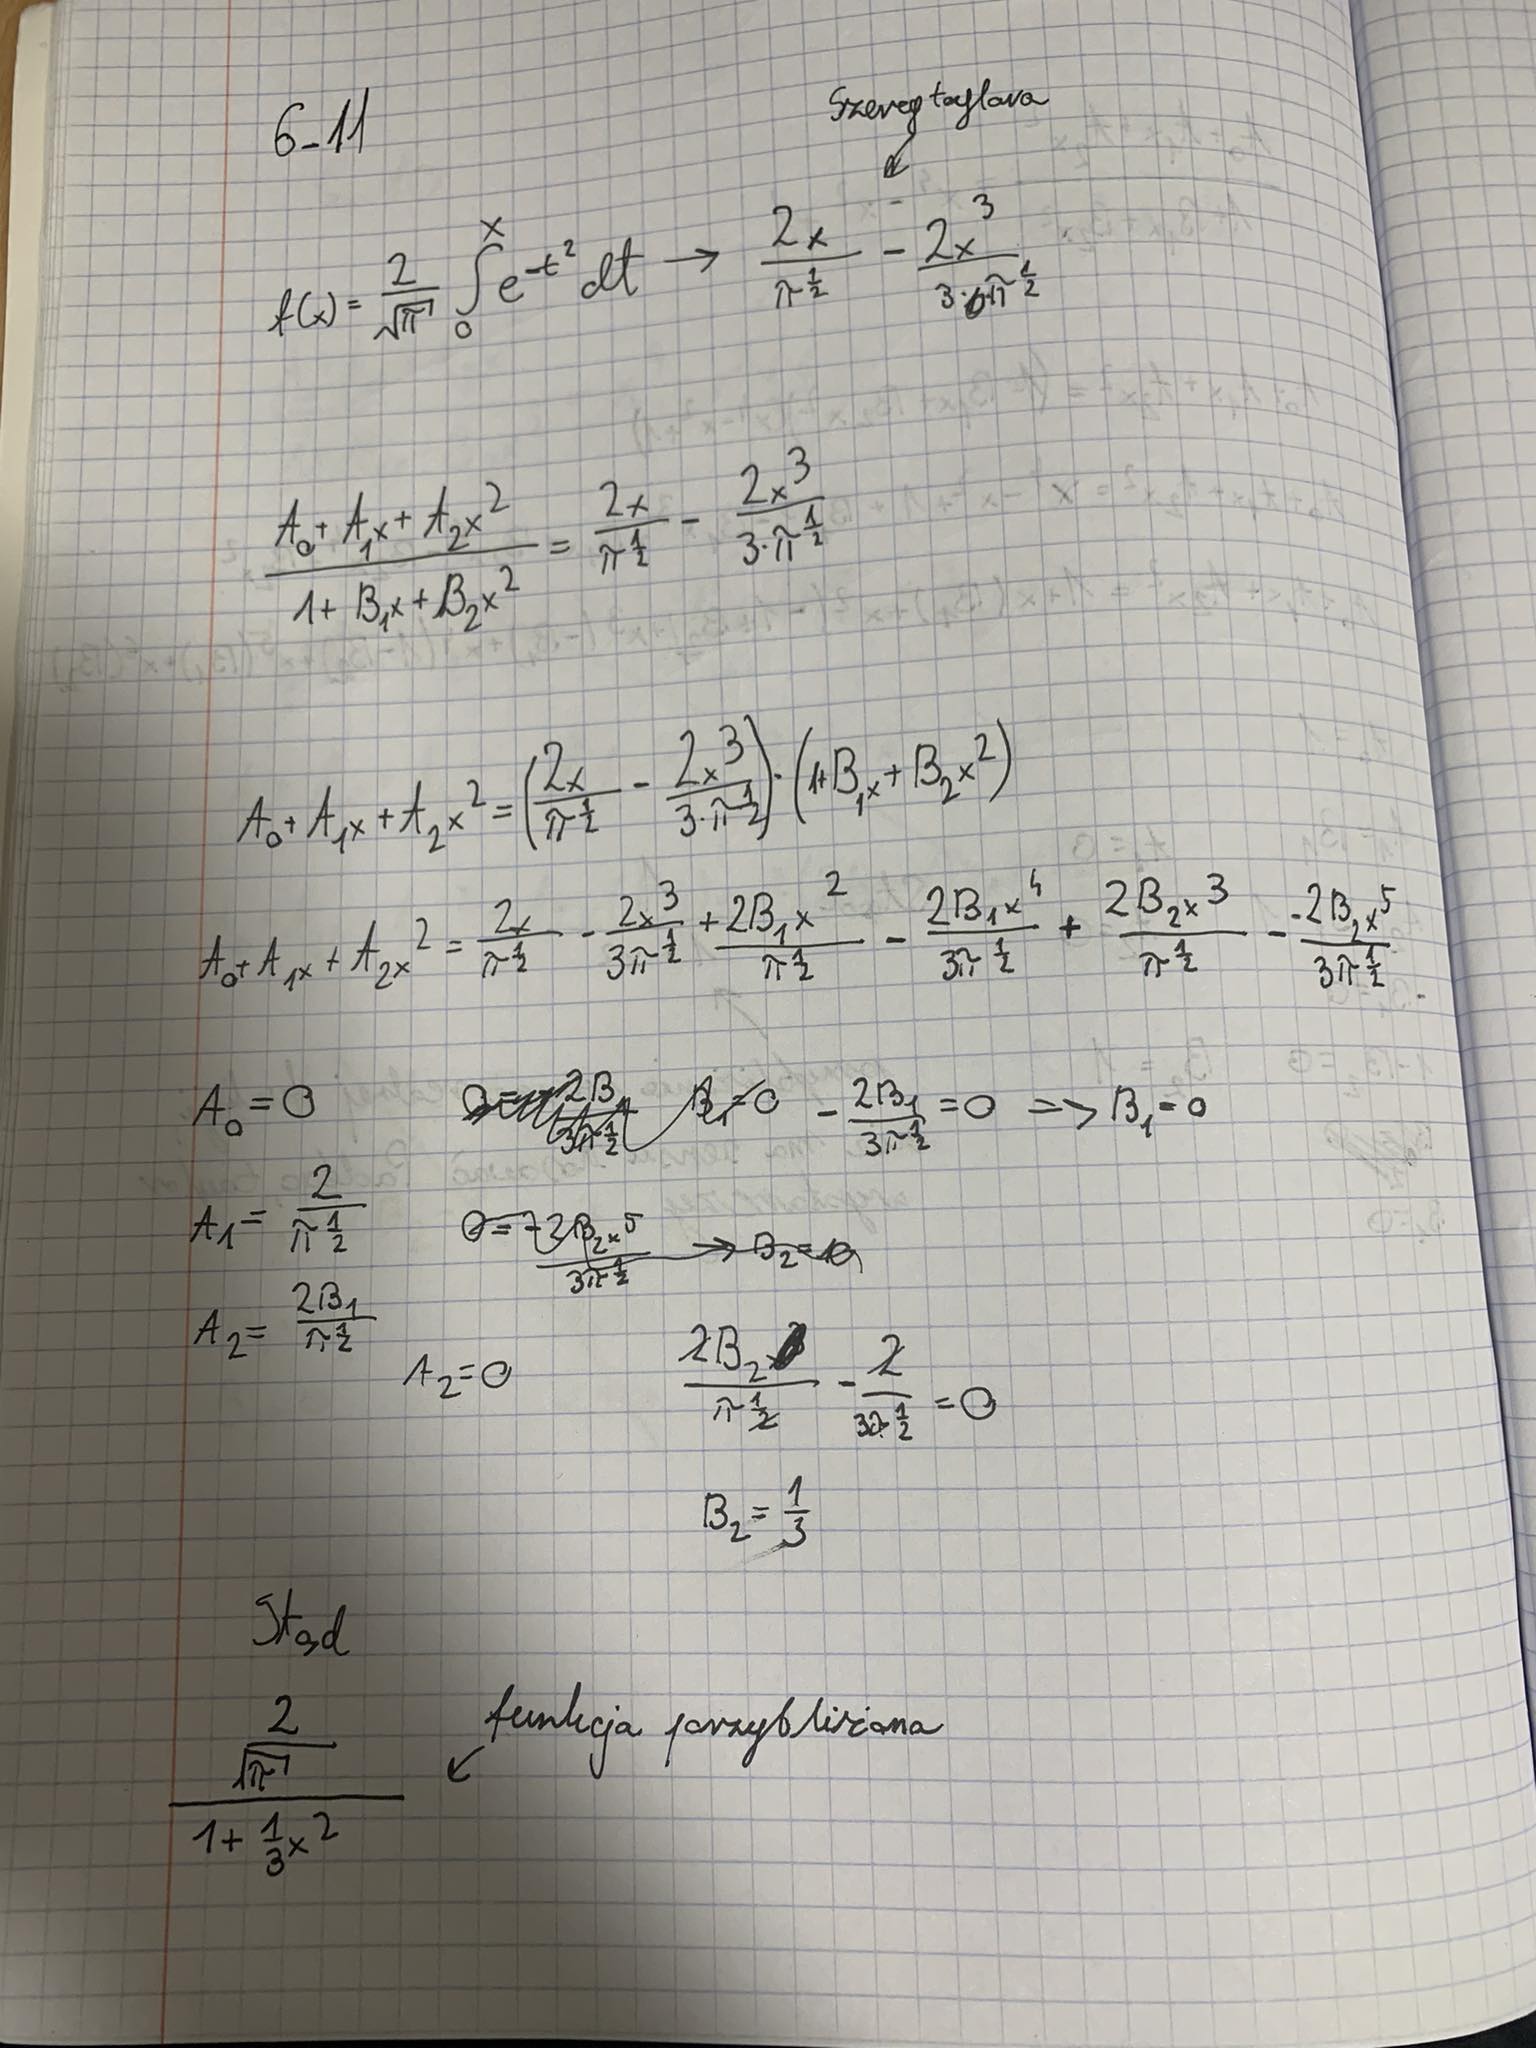 6-11
Szereg taylora
f(x) = 2/√π ∫₀ˣ e^-t² dt → 2x/π^½ - 2x³/3·π^½
(A₀ + A₁x + A₂x²)/(1 + B₁x + B₂x²) = 2x/π^½ - 2x³/3·π^½
A₀ + A₁x + A₂x² = (2x/π^½ - 2x³/3·π^½) · (1+B₁x + B₂x²)
A₀ + A₁x + A₂x² = 2x/π^½ - 2x³/3π^½ + 2B₁x²/π^½ - 2B₁x⁴/3π^½ + 2B₂x³/π^½ - -2B₂x⁵/3π^½
A₀ = 0 - 2B₁/3π^½ = 0 => B₁ = 0
A₁ = 2/π^½ 0 = -2B₂x⁵/3π^½ → B₂ =
A₂ = 2B₁/π^½ A₂ = 0 2B₂/π^½ - 2/3π^½ = 0
B₂ = 1/3
Stąd
(2/√π)/(1 + 1/3 x²) ↙ funkcja przybliżona